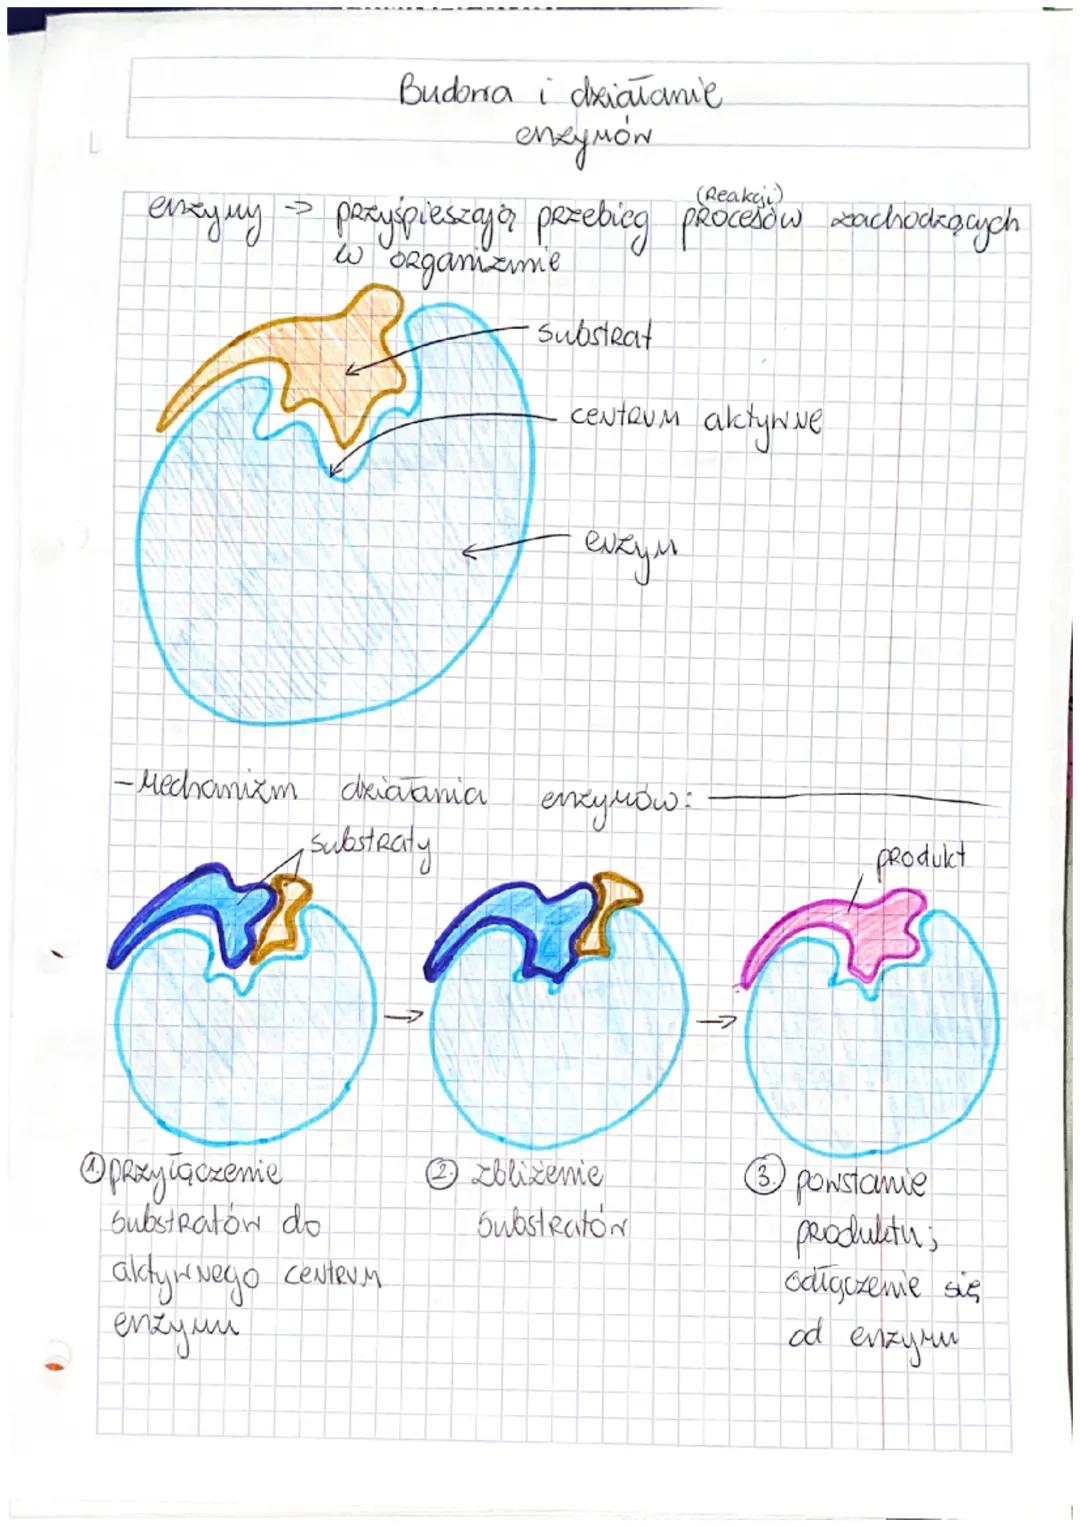 Budowa i działanie
enzymów
(Reakcji)
enzymy -> przyśpieszają przebieg procesów zachodzących
w organizmie
substrat
centrum aktywne
enzym
- Mechanizm działania enzymów:
substraty
produkt
1. przyłączenie
substratów do
aktywnego centrum
enzymu
2. zbliżenie
substratów
3. powstanie
produktu;
odłączenie się
od enzymu